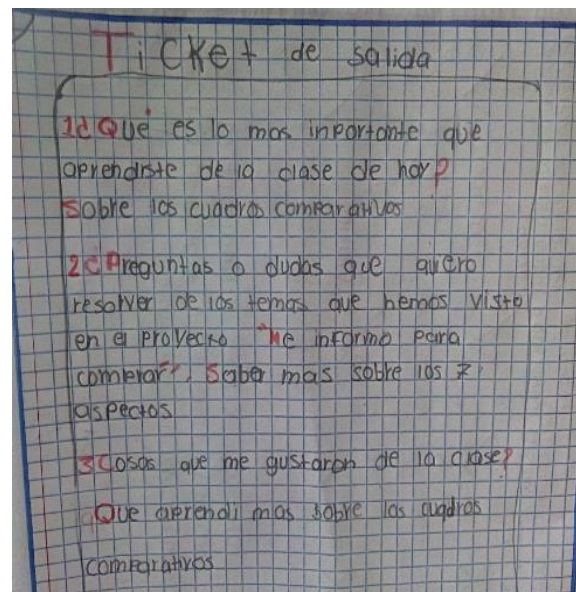 Ticket de salida
1¿Qué es lo mas inportante que
aprendiste de la clase de hoy?
Sobre los cuadros comparativos
2¿Preguntas o dudas que quiero
resolver de los temas que hemos visto
en el proyecto "Me informo para
comprar". Saber mas sobre los 7
aspectos
3Cosas que me gustaron de la clase?
Que aprendi mas sobre los cuadros
comparativos